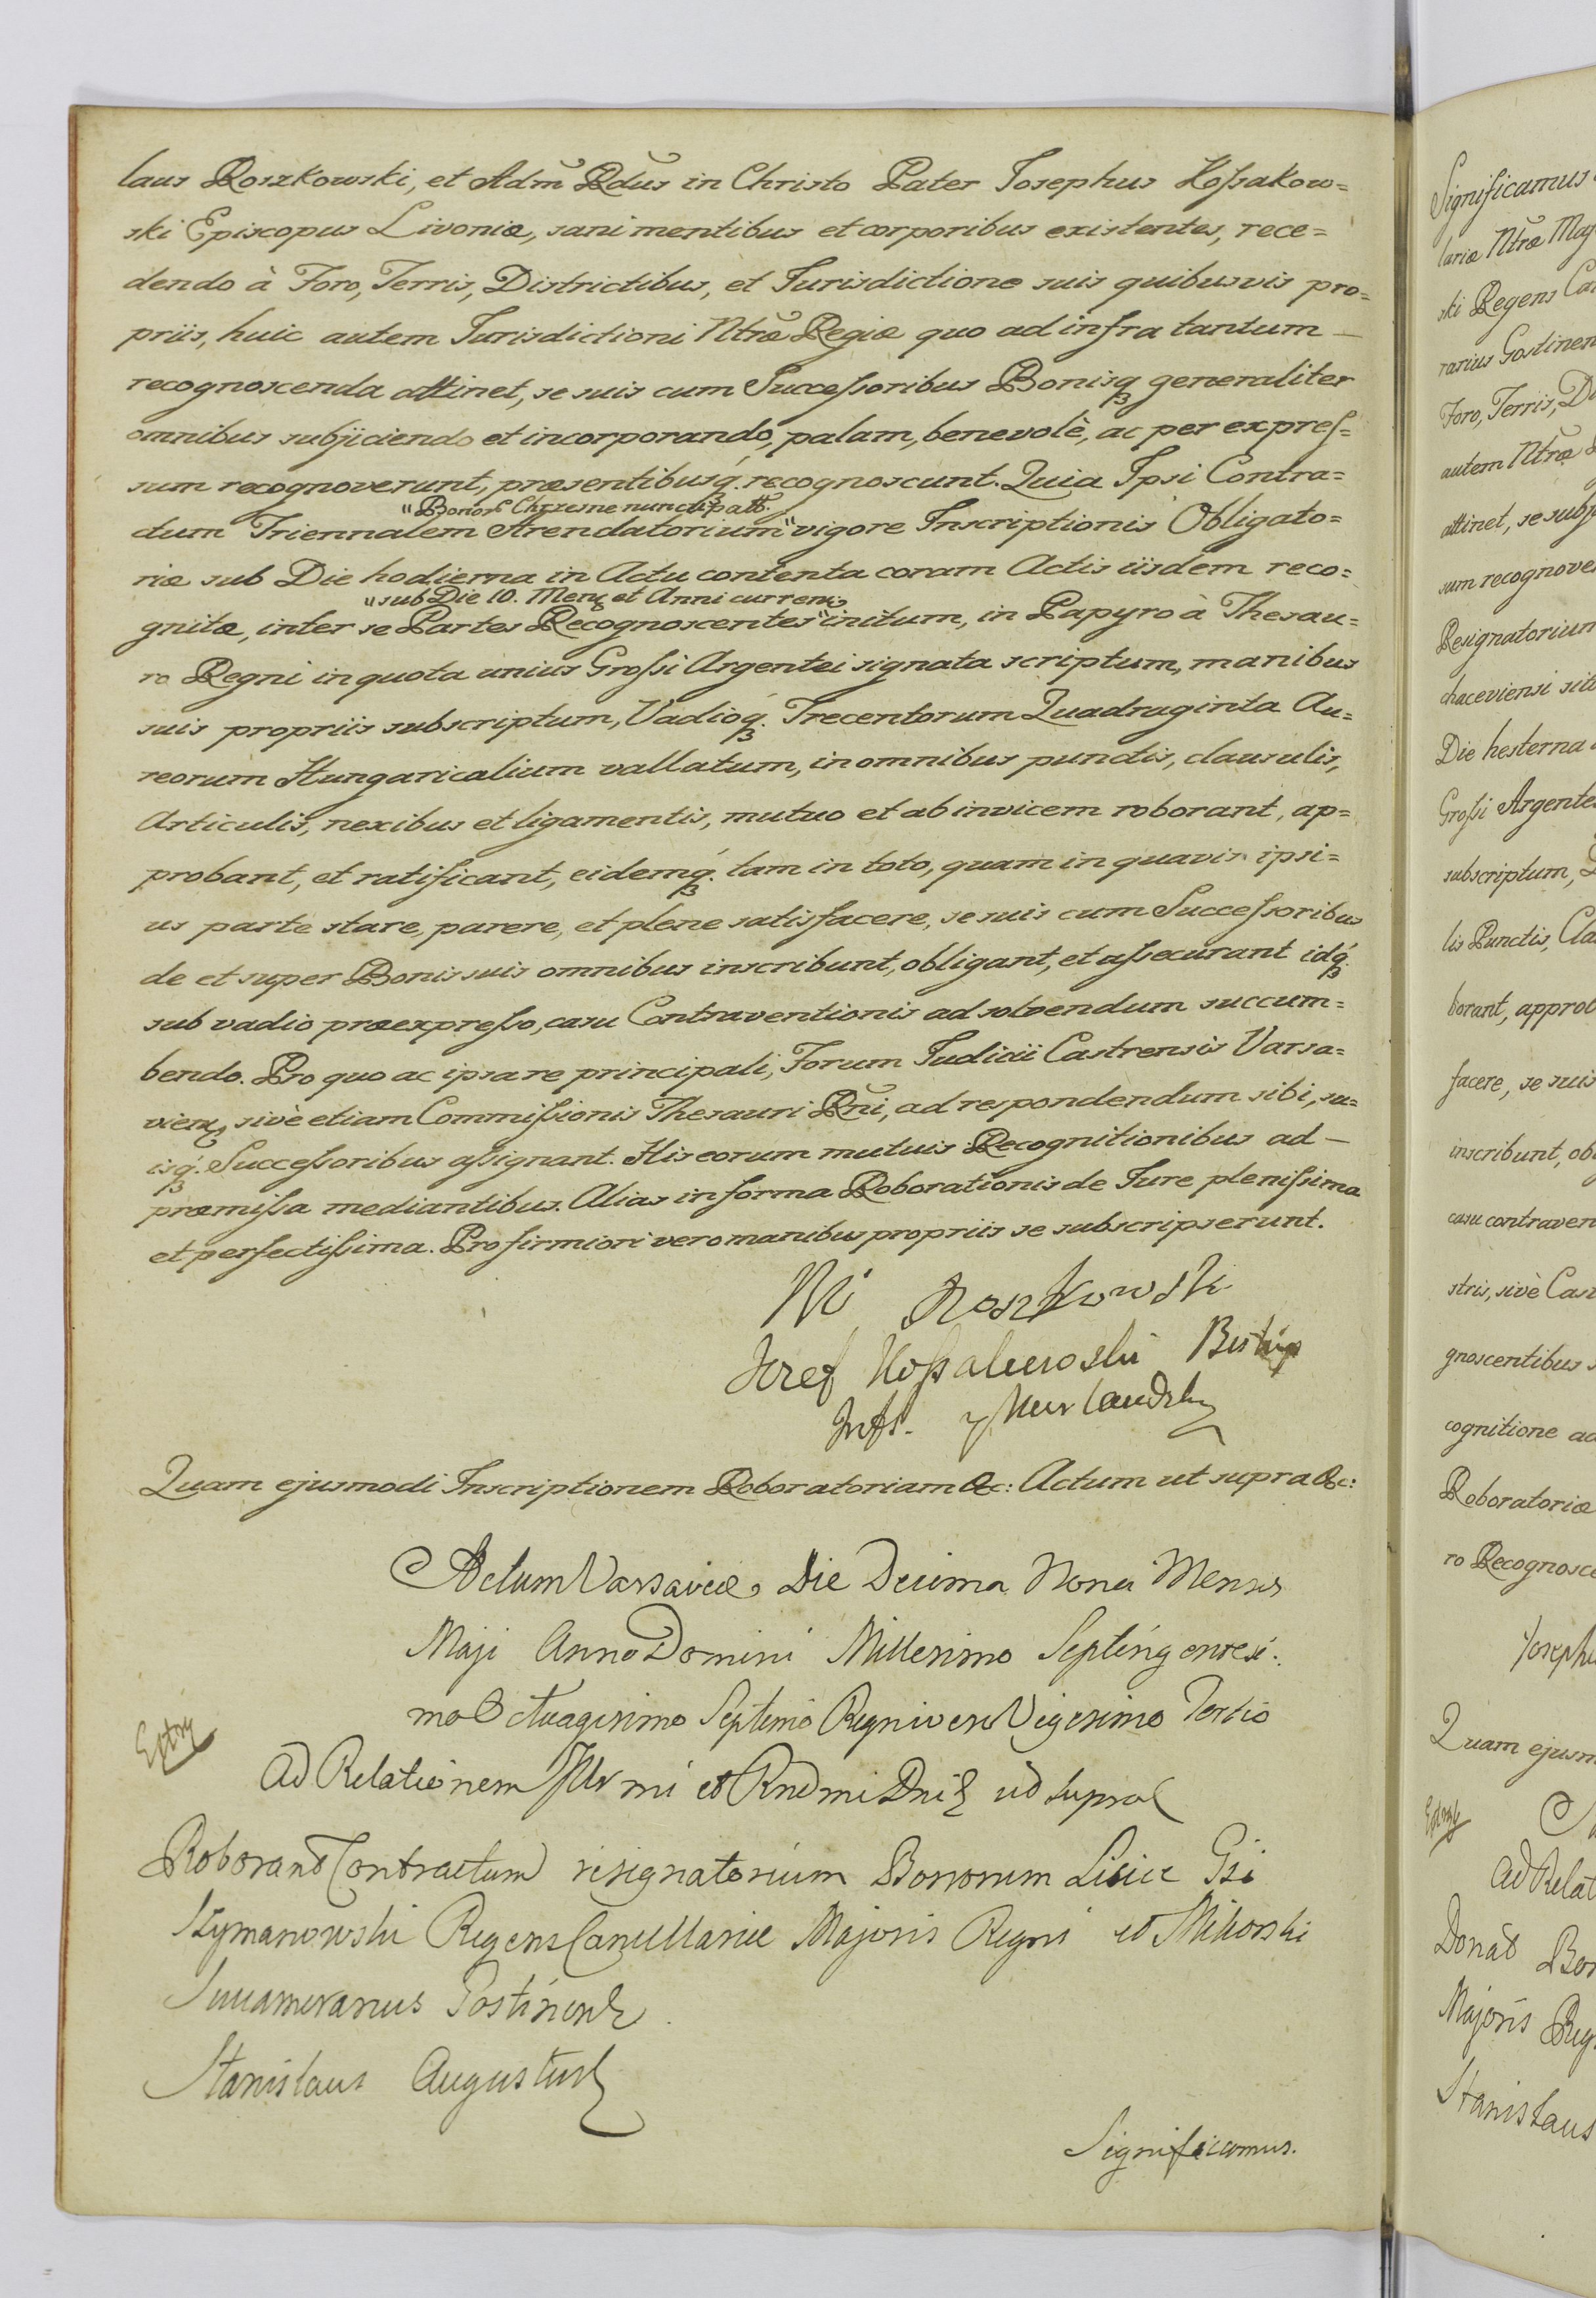 laus Roszkowski, et Adm̃ Rdũs in Christo Pater Josephus Kossakow=
ski Episcopus Livoniæ, sani mentibus et corporibus existentes, rece=
dendo à Foro, Terris, Districtibus, et Jurisdictione suis quibusvis pro=
priis, huic autem Jurisdictioni Ntræ̃ Regiæ quo ad infra tantum —
recognoscenda attinet, se suis cum Successoribus Bonisq3 generaliter
omnibus subjiciendo et incorporando, palam, benevolè, ac per expres=
sum recognoverunt, præsentibusq́3. recognoscunt. Quia Ipsi Contra=
"Bonor̃ Chrzesne nuncupatt̃.
ctum Triennalem Arendatorium" vigore Inscriptionis Obligato=
riæ sub Die hodierna in Actu contenta coram Actis iisdem reco=
"sub Die 10. Mens et Anni currens
gnitæ, inter se Partes Recognoscentes" initum, in Papyro à Thesau=
ro Regni in quota unius Grossi Argentei signata scriptum, manibus
suis propriis subscriptum, Vadioq́3. Trecentorum Quadraginta Au=
reorum Hungaricalium vallatum, in omnibus punctis, clausulis,
Articulis, nexibus et ligamentis, mutuo et ab invicem roborant, ap=
probant, et ratificant, eidemq́3. tam in toto, quam in quavis ipsi=
us parte stare, parere, et plene satisfacere, se suis cum Successoribus
de et super Bonis suis omnibus inscribunt, obligant, et assecurant idq́3.
sub vadio præexpresso, casu Contraventionis ad solvendum succum=
bendo. Pro quo ac ipsa re principali, Forum Judicii Castrensis Varsa=
viens, sivè etiam Commissionis Thesauri Rñi, ad respondendum sibi, su=
isq́3. Successoribus assignant. His eorum mutuis Recognitionibus ad —
præmissa mediantibus. Alias in forma Roborationis de Jure plenissima
et perfectissima. Pro firmiori vero manibus propriis se subscripserunt.
Roszkowski
Jozef Kossakowski Biskup
Infl. y Kurlandzky
Quam ejusmodi Inscriptionem Roboratoriam &c: Actum ut supra &c:
Actum Varsaviæ Die Decima Nona Mensis
Maji Anno Domini Millesimo Septingentesi:
mo Octuagesimo Septimo Regni vero Vigesimo Tertio
Ad Relationem Illrmi et Rndmi Dni ut supra
Roborand Contractum resignatorium Bonorum Lisice Gsi
Szymanowski Regens Cancellariæ Majoris Regni et Mikorski
Succamerarius Gostinens
Stanislaus Augustus
Significamus.
Significamus
lariæ Ntræ̃ Maj
ski Regens Can
rarius Gostinen
Foro, Terris, Di
autem Ntræ̃
attinet, se subj
sum recognover
Resignatorium
chaceviensi sit
Die hesterna
Grossi Argente
subscriptum,
lis Punctis, Cla
borant, approb
facere, se suis
inscribunt, ob
casu contraven
stris, sivè Cas
gnoscentibus
cognitione ad
Roboratoriæ
ro Recognosce
Josephu
Quam ejusm
Ad Relat
Donat Bon
Majoris Reg
Stanislaus